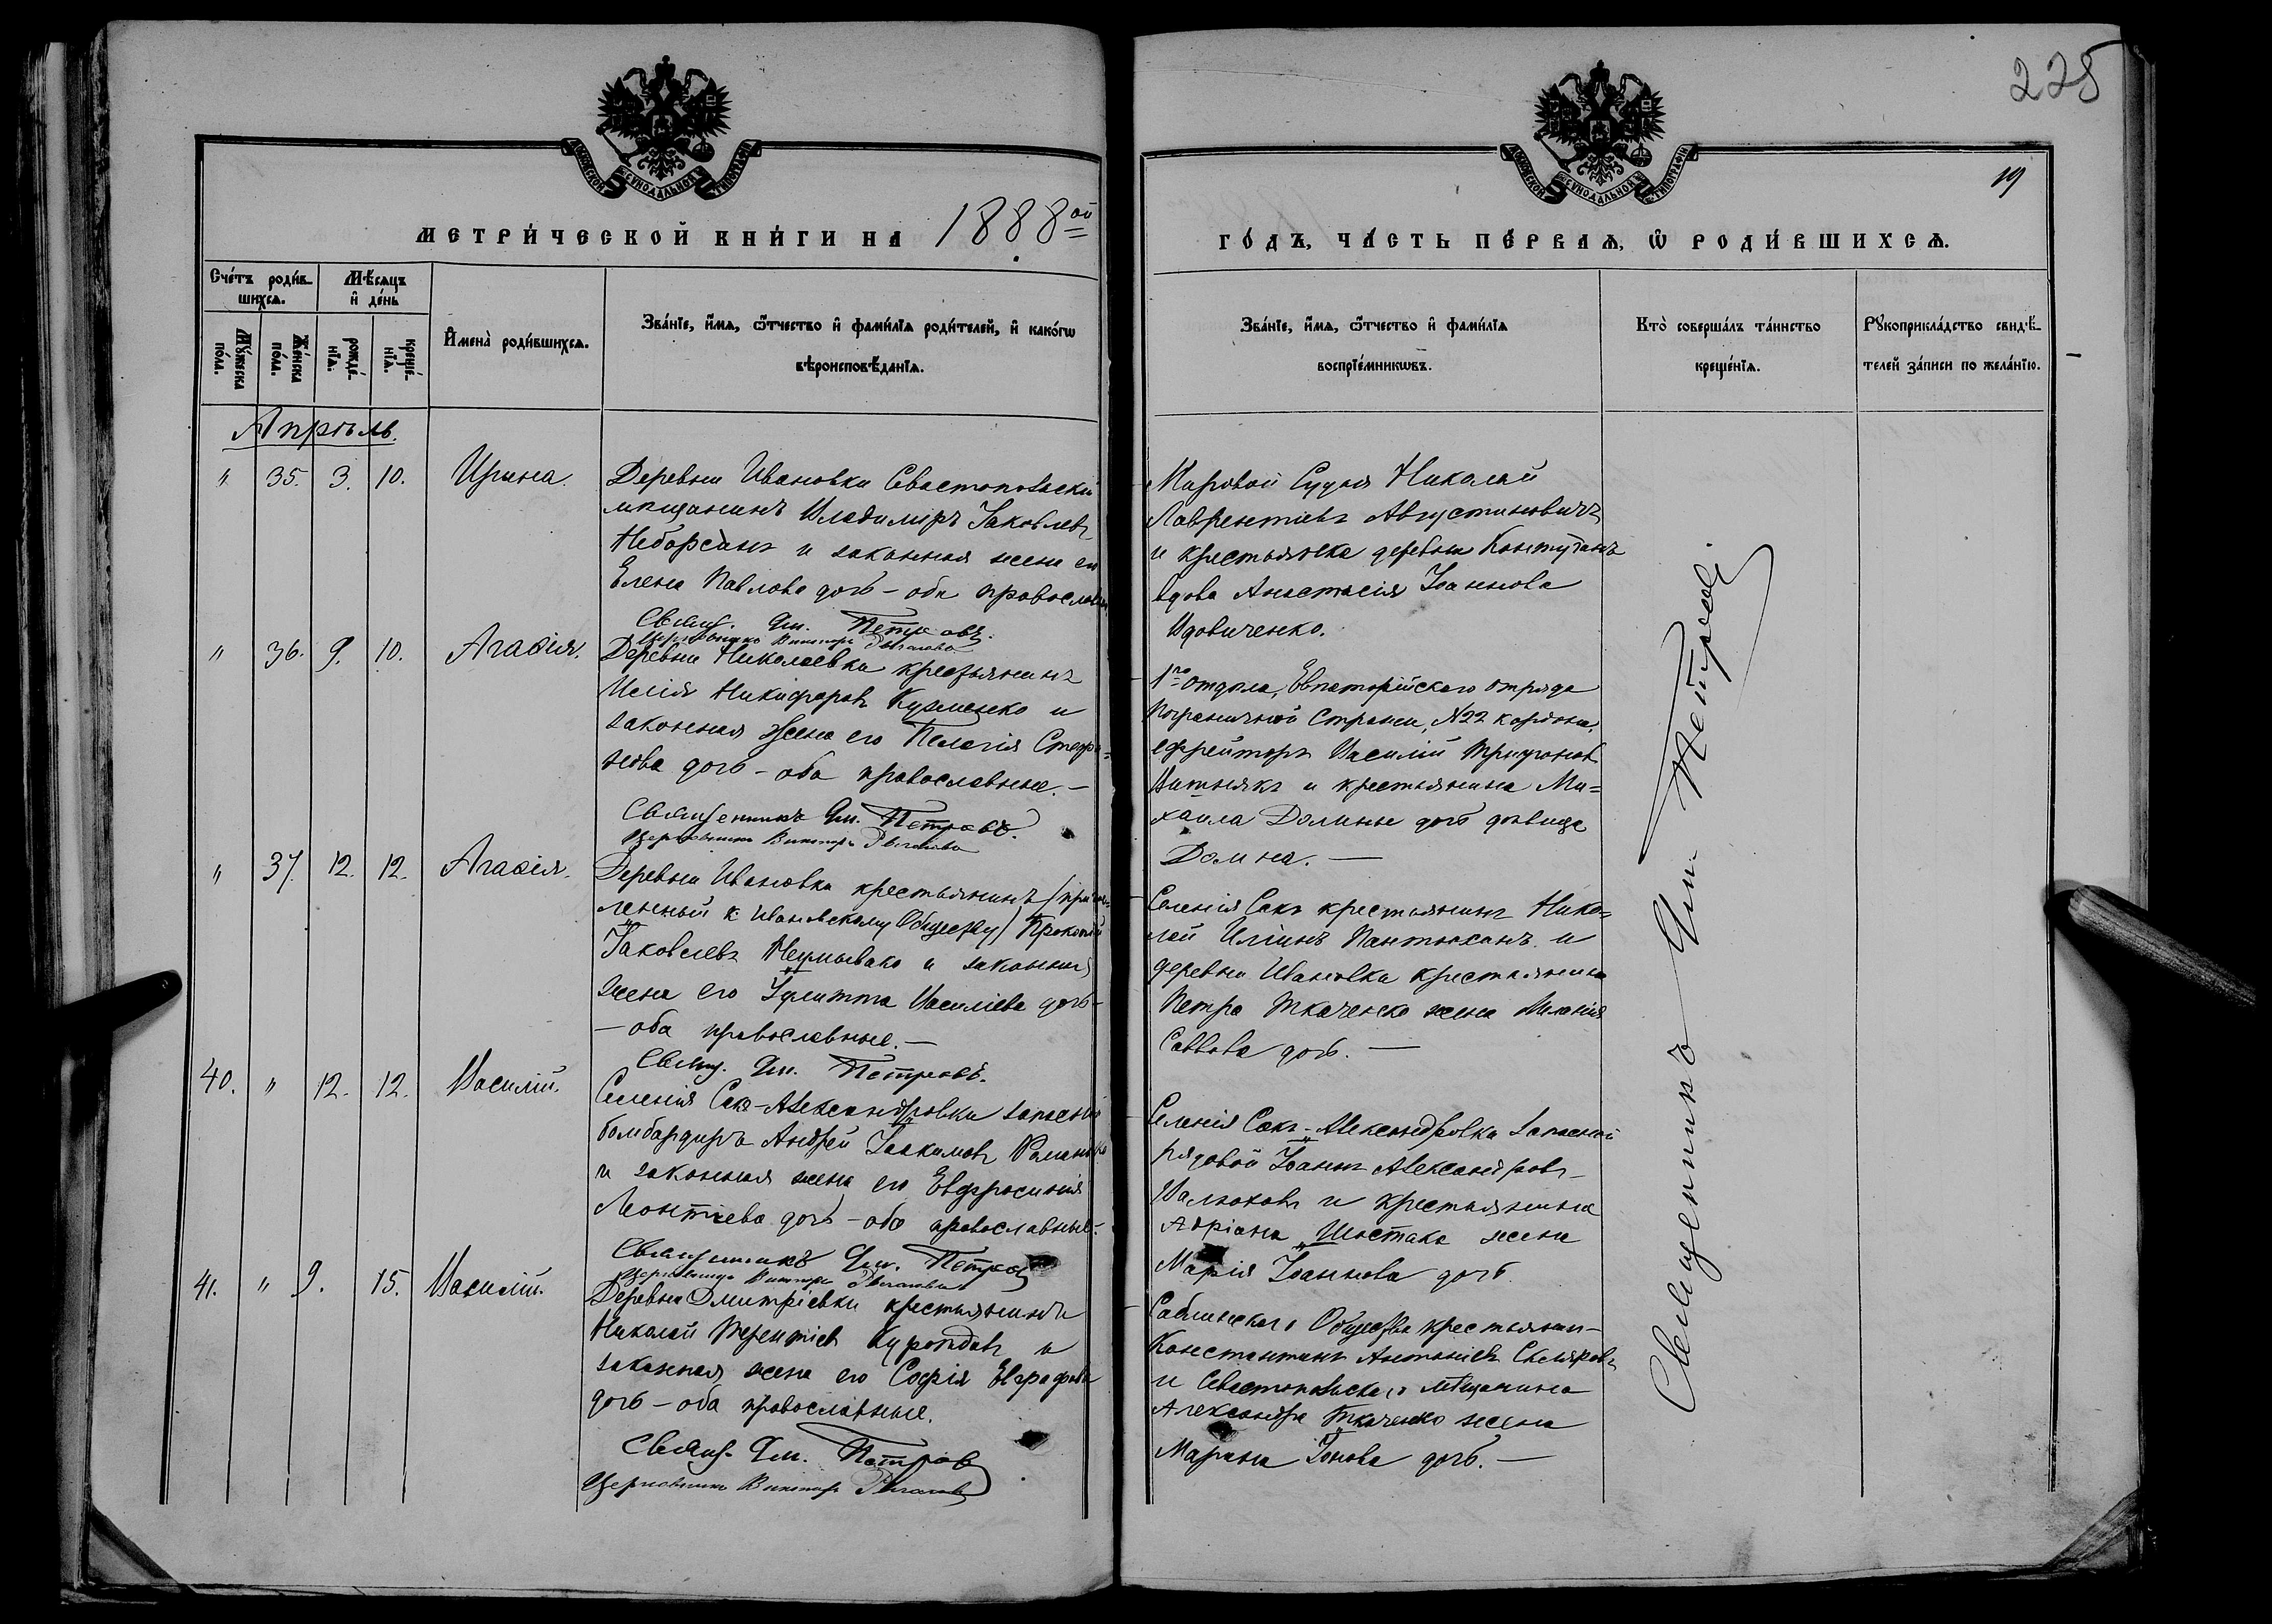 225
19
МОСКОВСКОЙ СѴНОДАЛЬНОЙ ТИПОГРАФІИ
МЕТРИ́ЧЕСКОЙ КНИ́ГИ НА 1888ой
МОСКОВСКОЙ СѴНОДАЛЬНОЙ ТИПОГРАФІИ
ГО́ДЪ, ЧА́СТЬ ПЕ́РВАѦ, Ѡ РОДИ́ВШИХСѦ.
Сче́тъ роди́в-
шихсѧ.
Мꙋ́жеска по́ла.
Же́нска по́ла.
Мѣ́сѧцъ
и де́нь
рожде́-нїѧ.
креще́-нїѧ.
Имена̀ роди́вшихсѧ.
Зва́нїе, и́мѧ, ѻ́тчество и фами́лїѧ роди́телей, и како́гѡ
вѣроисповѣ́данїѧ.
Зва́нїе, и́мѧ, ѻ́тчество и фами́лїѧ
воспрїе́мникѡвъ.
Кто̀ соверша́лъ та́инство
креще́нїѧ.
Рꙋкоприкла́дство свидѣ́-
телей за́писи по жела́нїю.
Апрѣль.
" 35. 3. 10. Ирина.
Деревни Ивановки Севастопольскій
мѣщанинъ Владимиръ Іаковлевъ
и законная жена его
Елена Павлова дочь – оба православные
Свящ. Дм. Петровъ.
Церковникъ Викторъ
Мировой Судья Николай
Лаврентіевъ Августиновичъ
и крестьянка деревни Контуганъ
вдова Анастасія Іоаннова
Вдовиченко.
" 36. 9. 10. Агаѳія.
Деревни Николаевки крестьянинъ
Илія Никифоровъ Кузменко и
законная жена его Пелагія Стефа-
нова дочь – оба православные. –
Священникъ Дм. Петровъ.
Церковникъ Викторъ
1го отдѣла, Евпаторійскаго отряда
Пограничной Стражи, №22 кордона,
ефрейторъ Василій Трифоновъ
и крестьянина Ми=
хаила Долины дочь дѣвица
Домна. –
" 37. 12. 12. Агаѳія.
Деревни Ивановки крестьянинъ
къ Ивановскому Обществу) Прокопій
Іаковлевъ и законная
жена его Іулитта Василіева дочь –
– оба православные. –
Свящ. Дм. Петровъ.
Селенія Сакъ крестьянинъ Нико=
лай Иліинъ и
деревни Ивановки крестьянина
Петра Ткаченко жена Меланія
Саввова дочь. –
40. " 12. 12. Василій.
Селенія Сакъ-Александровки запасный
бомбардиръ Андрей Іоакимовъ
и законная жена его Евфросинія
Леонтіева дочь – оба православные –
Священникъ Дм. Петровъ
Церковникъ Викторъ
Селенія Сакъ-Александровки запасный
рядовой Іоаннъ Александровъ
и крестьянина
Адріана Шостака жена
Марія Іоаннова дочь
41. " 9. 15. Василій.
Деревни Дмитріевки крестьянинъ
Николай Терентіевъ и
законная жена его Софія Евграфова
дочь – оба православные.
Свящ. Дм. Петровъ
Церковникъ Викторъ
Саблинскаго Общества крестьянин-
Константинъ Антоніевъ Скляровъ
и Севастопольскаго мѣщанина
Александра Ткаченко жена
Марина Іонова дочь. –
Священникъ Дм Петровъ